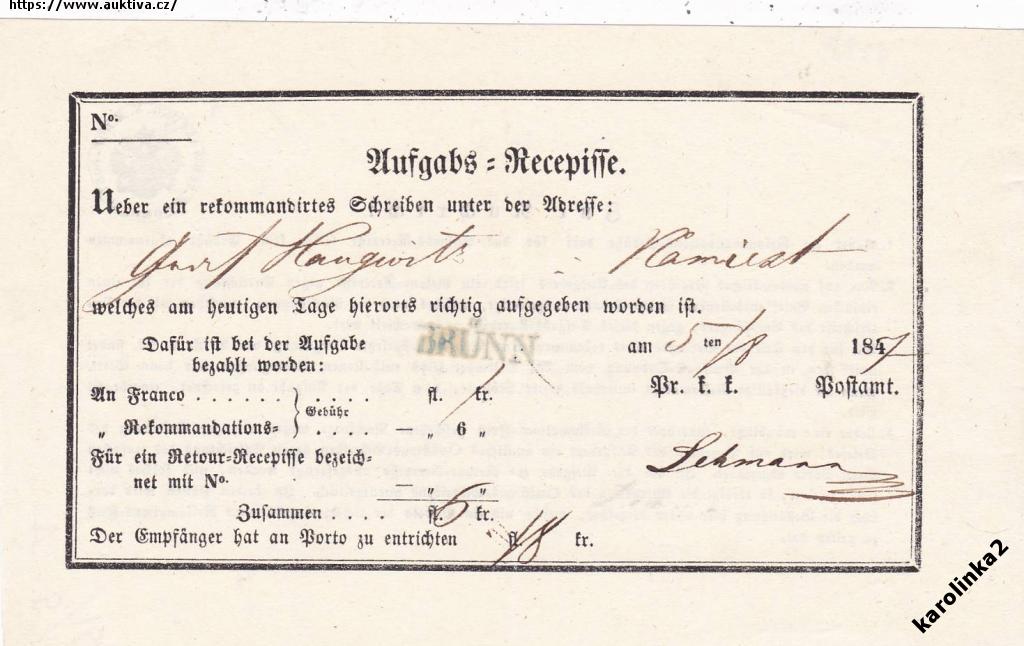 https://www.auktiva.cz/
No.
Aufgabs = Recepisse.
Ueber ein rekommandirtes Schreiben unter der Adresse:
Haugwitz Namiest
welches am heutigen Tage hierorts richtig aufgegeben worden ist.
Dafür ist bei der Aufgabe BRÜNN am 5ten/8 1847
bezahlt worden:
Pr. k. k. Postamt.
An Franco . . . . . . . Gebühr . . . . . fl. kr.
„ Rekommandations= . . . . . — „ 6 „
Für ein Retour=Recepisse bezeich=
net mit No. — „ „
Lehmann
Zusammen . . . . fl. 6 kr.
Der Empfänger hat an Porto zu entrichten fl. 18 kr.
karolinka2